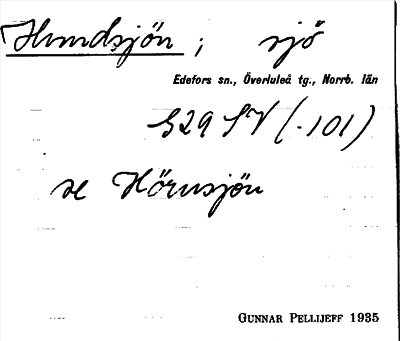 Hundsjön ; sjö
Edefors sn., Överluleå tg., Norrb. län
S29 SV (-101)
se Hörnsjön
GUNNAR PELLIJEFF 1935